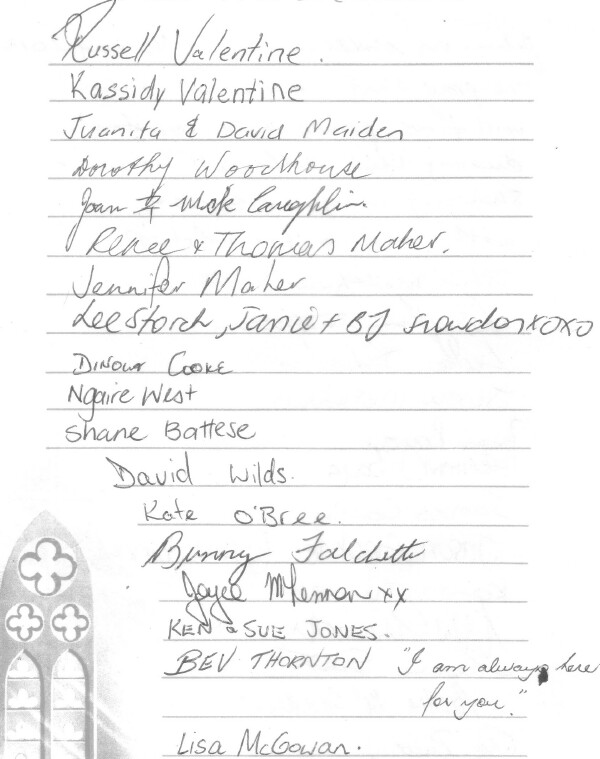 Russell Valentine.
Kassidy Valentine
Juanita & David Maiden
Dorothy Woodhouse
Joan & Mck Caughlin.
Renee & Thomas Maher.
Jennifer Maher
Lee Storch, Janie + BJ Snowdon xoxo
Cooke
Ngaire West
Shane Battese
David Wilds.
Kate O'Bree.
Bunny Falchetti
Joyce McLennan xx
KEN & SUE JONES.
BEV THORNTON "I am always here
for you."
Lisa McGowan.